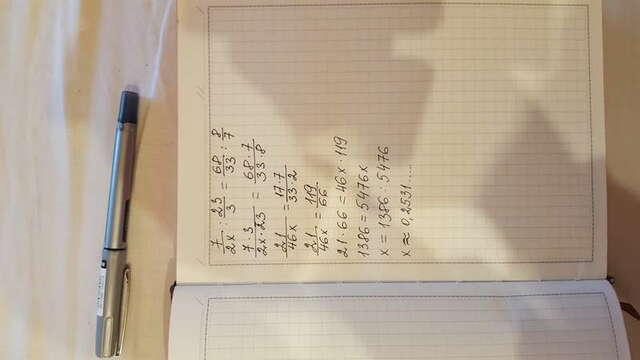 7/2x : 23/3 = 68/33 : 8/7
7·3/2x·23 = 68·7/33·8
21/46x = 17·7/33·2
21/46x = 119/66
21·66=46x·119
1386=5476x
x=1386:5476
x≈0,2531....